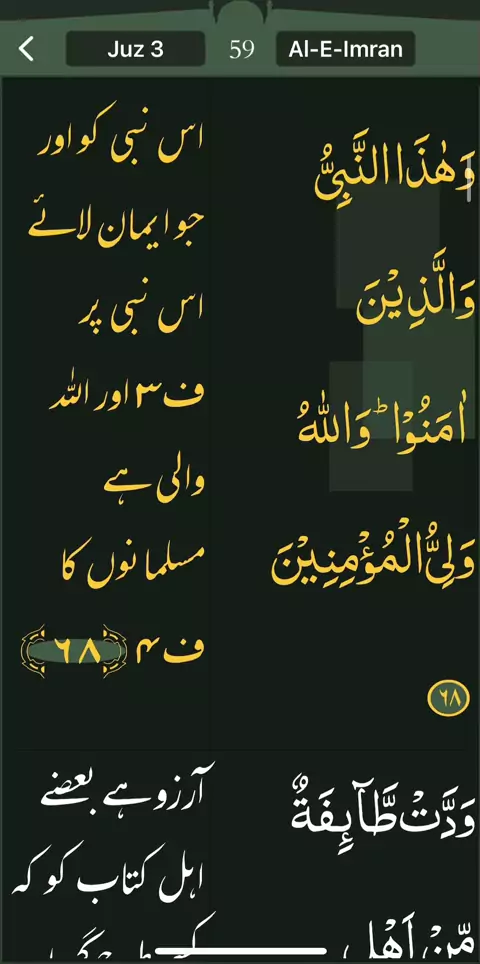 Juz 3
59
Al-E-Imran
وَهٰذَا النَّبِیُّ
وَالَّذِیْنَ
اٰمَنُوْا ؕ وَاللّٰهُ
وَلِیُّ الْمُؤْمِنِیْنَ
۶۸
اس نبی کو اور
جو ایمان لائے
اس نبی پر
ف۳ اور اللہ
والی ہے
مسلمانوں کا
ف۴ ۶۸
وَدَّتْ طَّآىِٕفَةٌ
مِّنْ اَهْلِ
آرزو ہے بعضے
اہل کتاب کو کہ